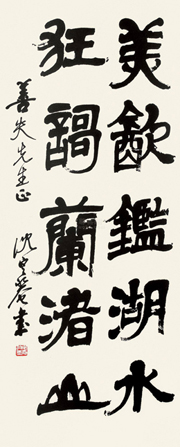 美㱃鑑湖水
狂謌蘭渚山
善夫先生正
沈定菴書